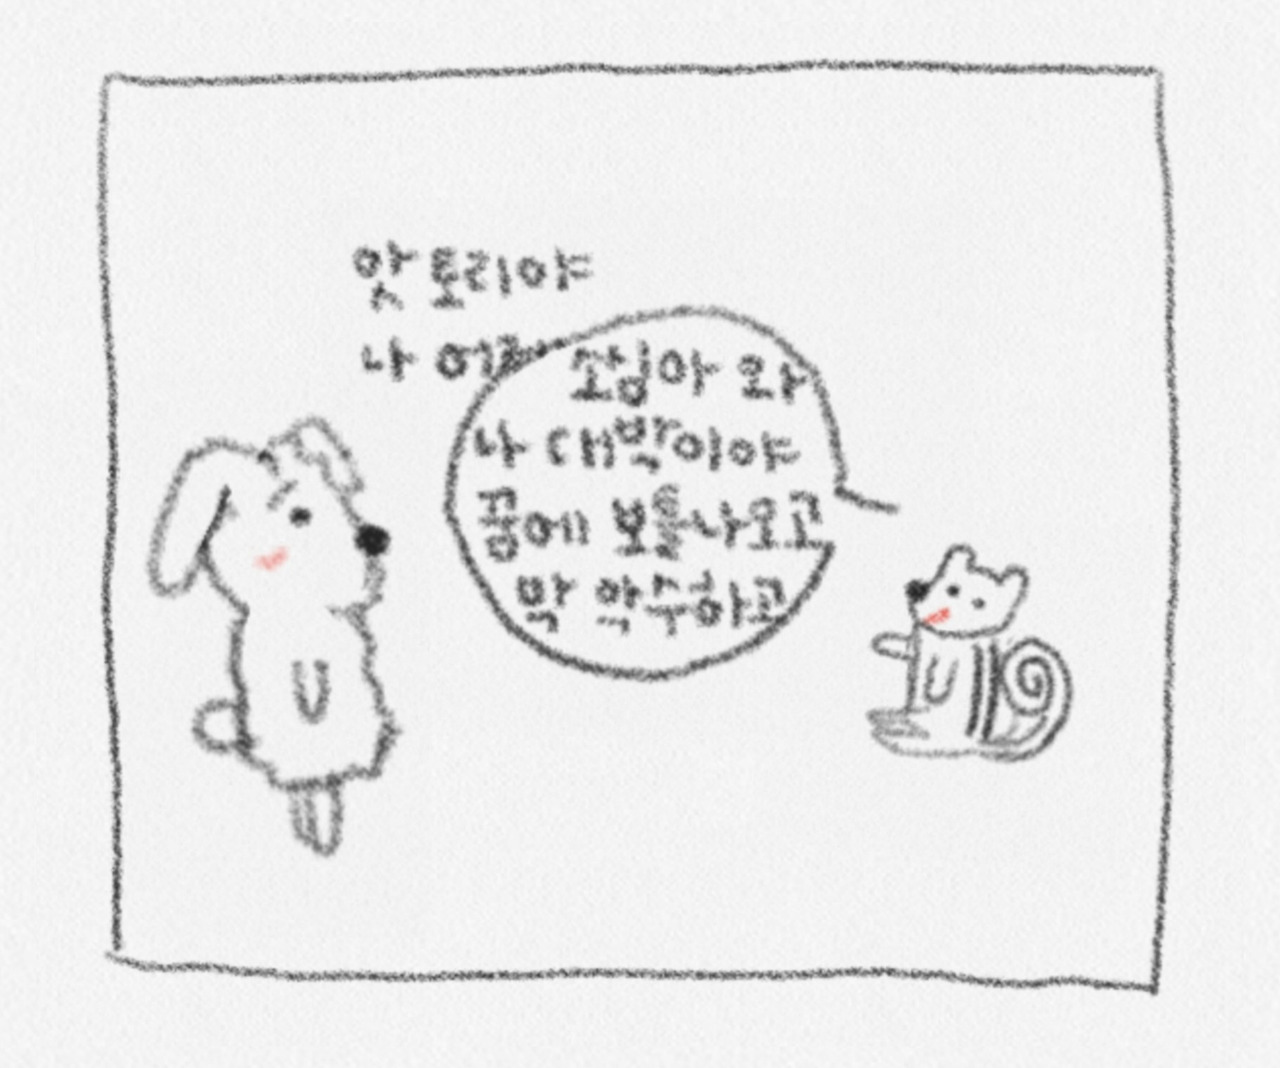 앗 토리야
나 어제
소심아 와
나 대박이야
꿈에 보틀나오고
막 악수하고